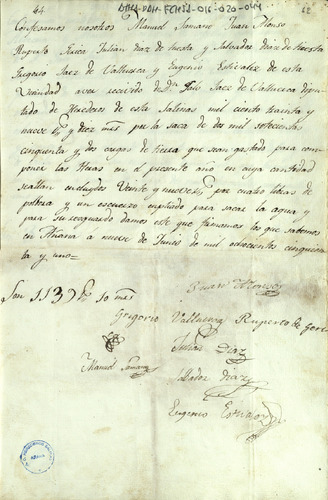 44
62
Confesamos nosotros Manuel Samano Juan Alonso
Ruperto Julian Diaz de Salvador Diaz de
Gregorio Saez de Valluerca y Eugenio de esta
Vecindad aver recivido de Dn Saez de Valluerca dipu
tado de Herederos de esta Salinas mil ciento treinta y
nueve y diez mrs por la saca de dos mil setecientos
cinquenta y dos cargas de tierra que se an gastado para com
poner las Heras en el presente año en cuya cantidad
se allan incluydos Veinte y nueve por cuatro libras de
polbora y un para sacar la agua y
para su resguardo damos este que firmamos los que sabemos
en Añana a nueve de Junio de mil ochocientos cinquen
ta y uno=
Son 1139 10 mrs
Juan Alonso
Gregorio Valluerca Ruperto de
Julian Diaz
Manuel Samano
Salbador Diaz
Eugenio